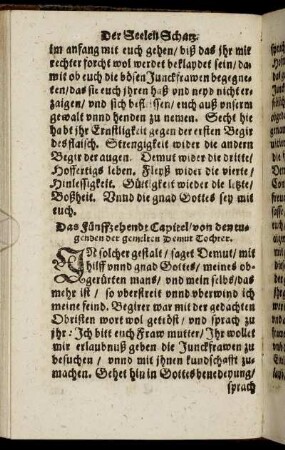 Der Seelen Schatz
im anfang mit euch gehen/ biß das jhr mit
rechter forcht wol werdet beklaydet sein/ da-
mit ob euch die bösen Junckfrawen begegne-
ten/ das sie euch jhren haß vnd neyd nicht er-
zaigen/ vnd sich befleissen/ euch auß vnserm
gewalt vnnd henden zu nemen. Secht hie
habt jhr Ernstligkeit gegen der ersten Begir
des flaisch. Strengigkeit wider die andern
Begir der augen. Demut wider die dritte/
Hoffertigs leben. Fleyß wider die vierte/
Hinlessigkeit. Gütigkeit wieder die letzte/
Boßheit. Vnnd die gnad Gottes sey mit
euch.
Das Fünffzehende Capitel/ von den tu-
genden der gemelten Demut Tochter.
IN solcher gestalt/ saget Demut/ mit
hilff vnnd gnad Gottes/ meines ob-
gerürten mans/ vnd mein selbs/ das
mehr ist/ so vberstreit vnnd vberwind ich
meine feind. Begirer war mit der gedachten
Obristen wort wol getröst/ vnd sprach zu
jhr: Ich bitt euch Fraw mutter/ Ihr wollet
mir erlaubnuß geben die Junckfrawen zu
besuchen/ vnnd mit jhnen kundschafft zu-
machen. Gehet hin in Gottes benedeyung/
sprach